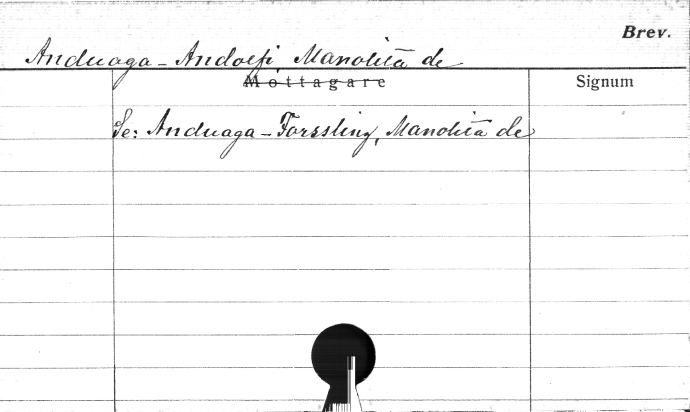 Brev.
Anduaga-Andolfi Manolita de
Mottagare
Signum
Se: Anduaga-Forssling, Manolita de